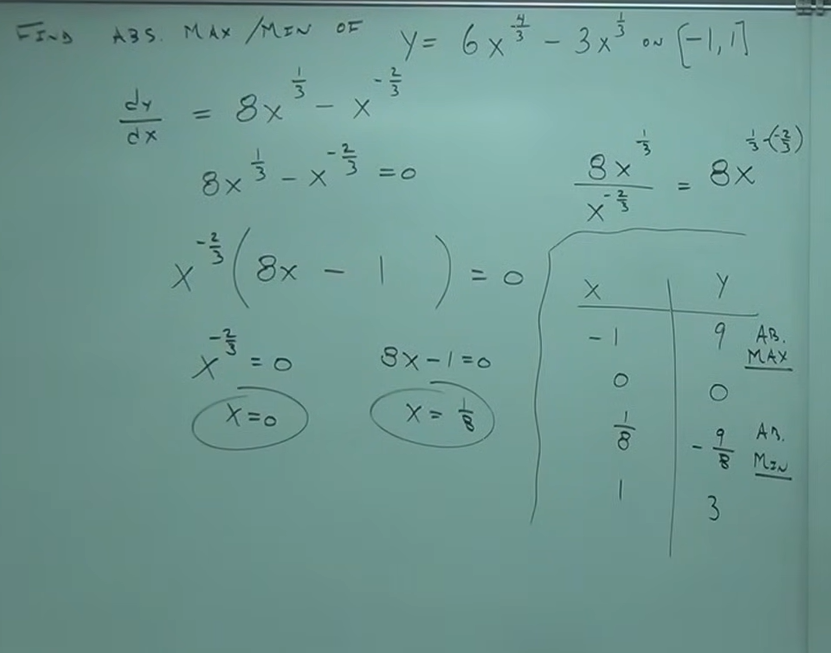 FIND ABS. MAX/MIN OF y = 6x^{4/3} - 3x^{1/3} ON [-1,1]
dy/dx = 8x^{1/3} - x^{-2/3}
8x^{1/3} - x^{-2/3} = 0
8x^{1/3} / x^{-2/3} = 8x^{1/3-(-2/3)}
x^{-2/3}(8x - 1) = 0
x^{-2/3} = 0 8x - 1 = 0
x = 0 x = 1/8
x y
-1 9 AB. MAX
0 0
1/8 -9/8 AB. MIN
1 3